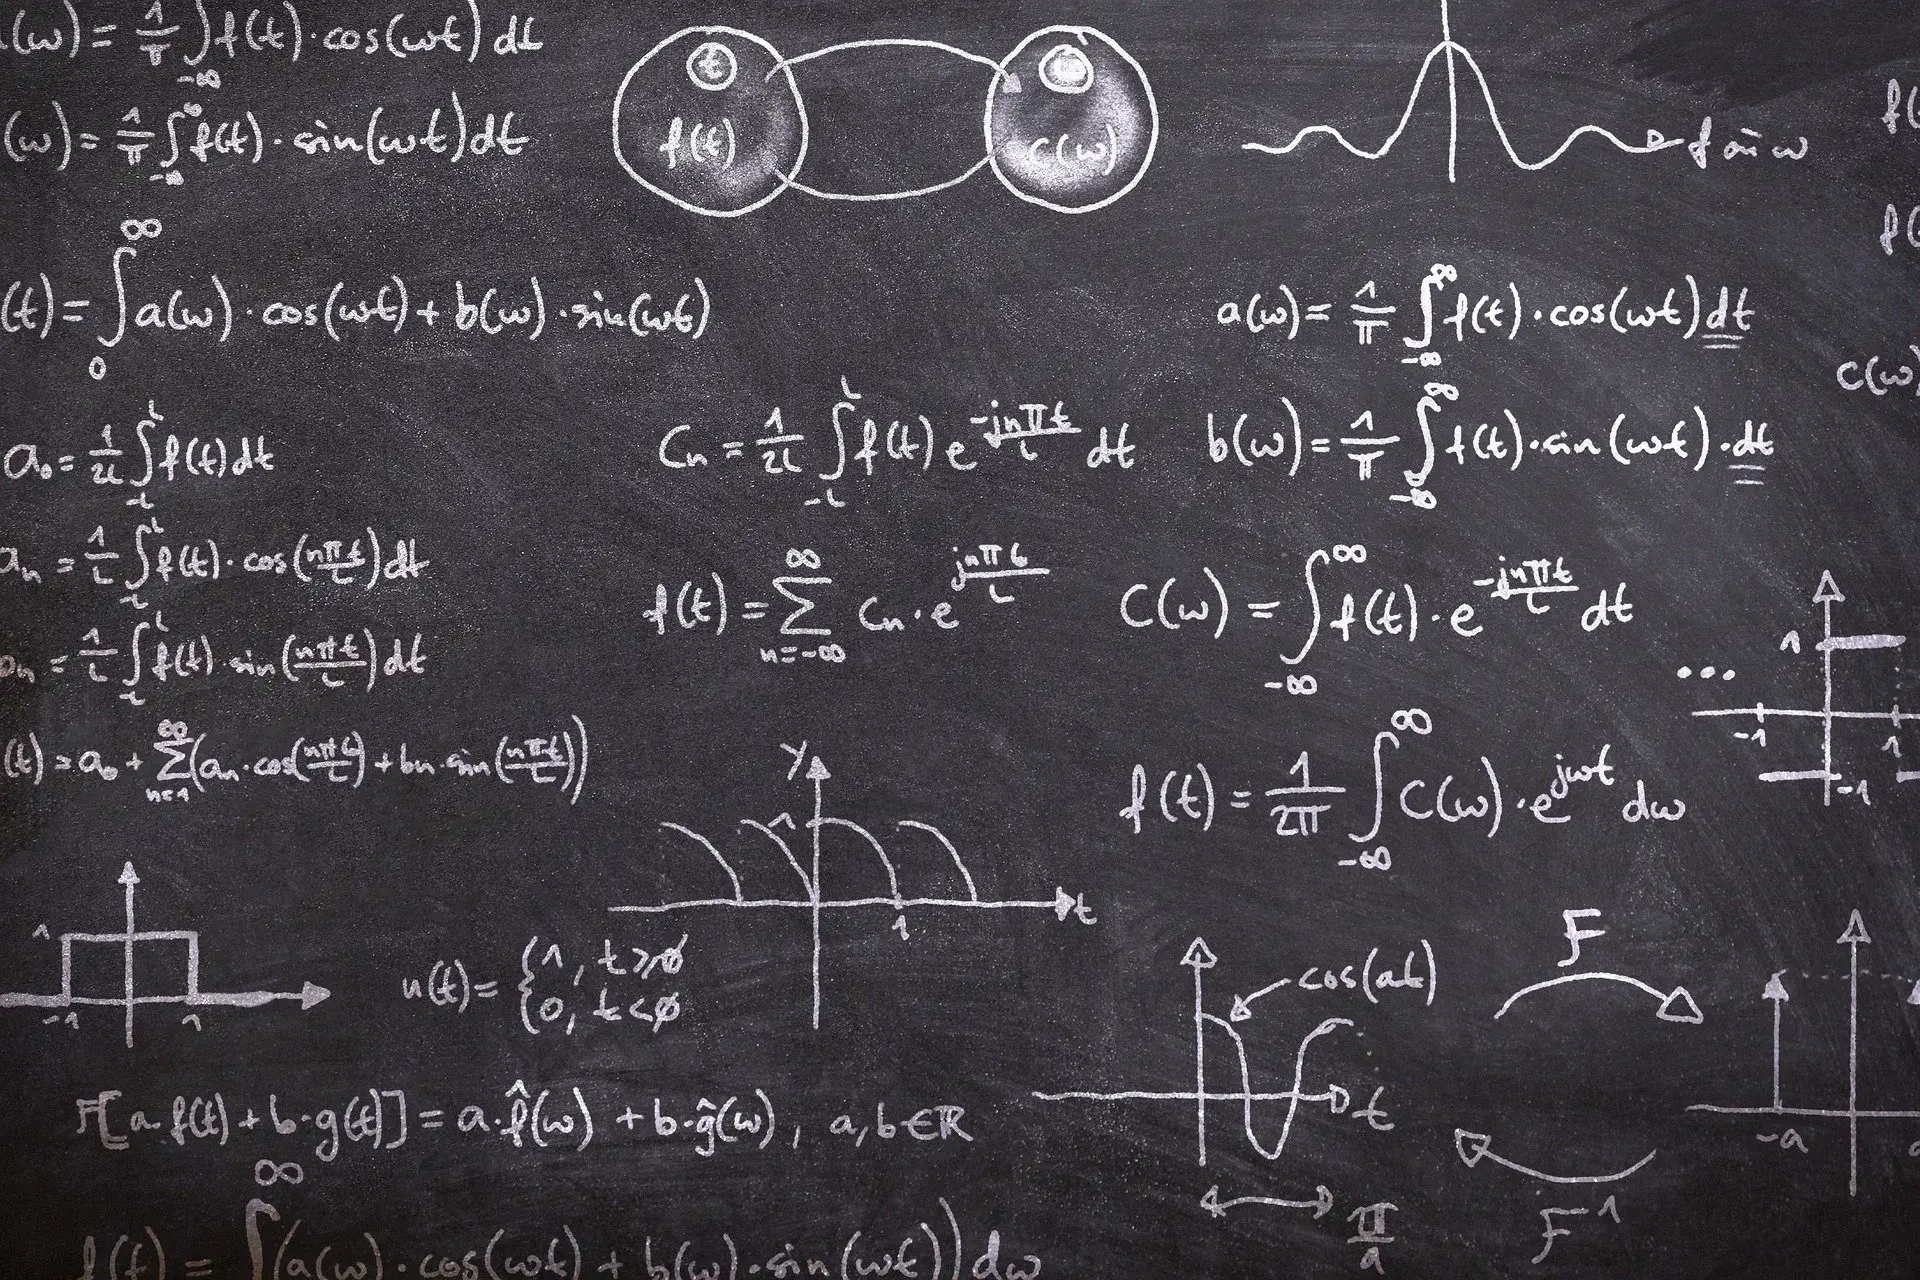 (ω) = 1/π ∫_{-∞} f(t)·cos(ωt) dt
(ω) = 1/π ∫_{-∞}^{∞} f(t)·sin(ωt) dt
t
f(t)
c(ω)
f
ω
f(
f(
(t) = ∫_0^∞ a(ω)·cos(ωt) + b(ω)·sin(ωt)
a(ω) = 1/π ∫_{-∞}^{∞} f(t)·cos(ωt) dt
c(ω)
a₀ = 1/2L ∫_{-L}^{L} f(t) dt
Cₙ = 1/2L ∫_{-L}^{L} f(t) e^{-jnπt/L} dt
b(ω) = 1/π ∫_{-∞}^{∞} f(t)·sin(ωt)·dt
aₙ = 1/L ∫_{-L}^{L} f(t)·cos(nπt/L) dt
f(t) = Σ_{n=-∞}^{∞} Cₙ·e^{jnπt/L}
C(ω) = ∫_{-∞}^{∞} f(t)·e^{-jnπt/L} dt
bₙ = 1/L ∫_{-L}^{L} f(t)·sin(nπt/L) dt
1
...
-1
1
-1
(t) = a₀ + Σ_{n=1}^{∞} (aₙ·cos(nπt/L) + bₙ·sin(nπt/L))
f(t) = 1/2π ∫_{-∞}^{∞} C(ω)·e^{jωt} dω
Y
1
t
1
1
-1
1
u(t) = {1, t≥0
0, t<0
cos(at)
t
π/a
F
F⁻¹
-a
F[a·f(t) + b·g(t)] = a·f̂(ω) + b·ĝ(ω), a, b ∈ ℝ
f(t) = ∫^∞ (a(ω)·cos(ωt) + b(ω)·sin(ωt)) dω